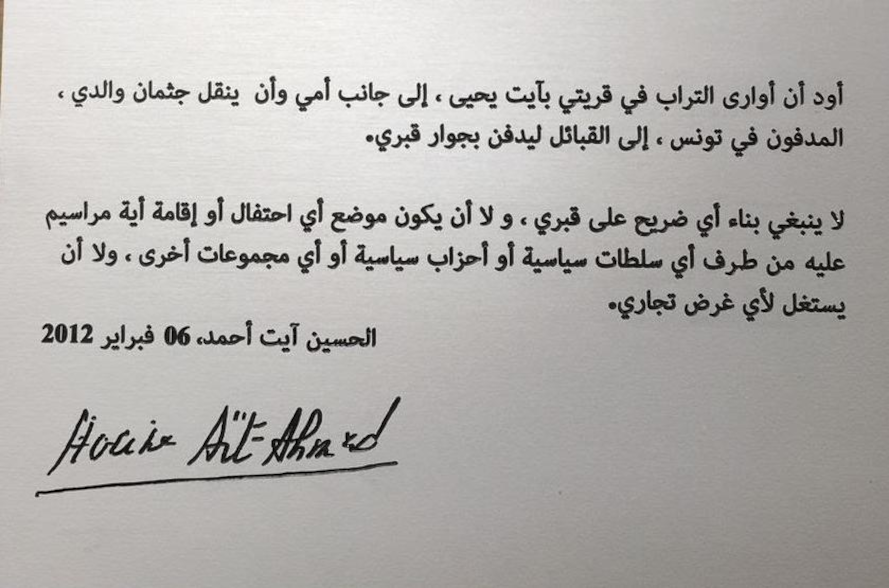 أود أن أوارى التراب في قريتي بآيت يحيى ، إلى جانب أمي وأن ينقل جثمان والدي ،
المدفون في تونس ، إلى القبائل ليدفن بجوار قبري.
لا ينبغي بناء أي ضريح على قبري ، و لا أن يكون موضع أي احتفال أو إقامة أية مراسيم
عليه من طرف أي سلطات سياسية أو أحزاب سياسية أو أي مجموعات أخرى ، ولا أن
يستغل لأي غرض تجاري.
الحسين آيت أحمد، 06 فبراير 2012
Hocine Aït-Ahmed